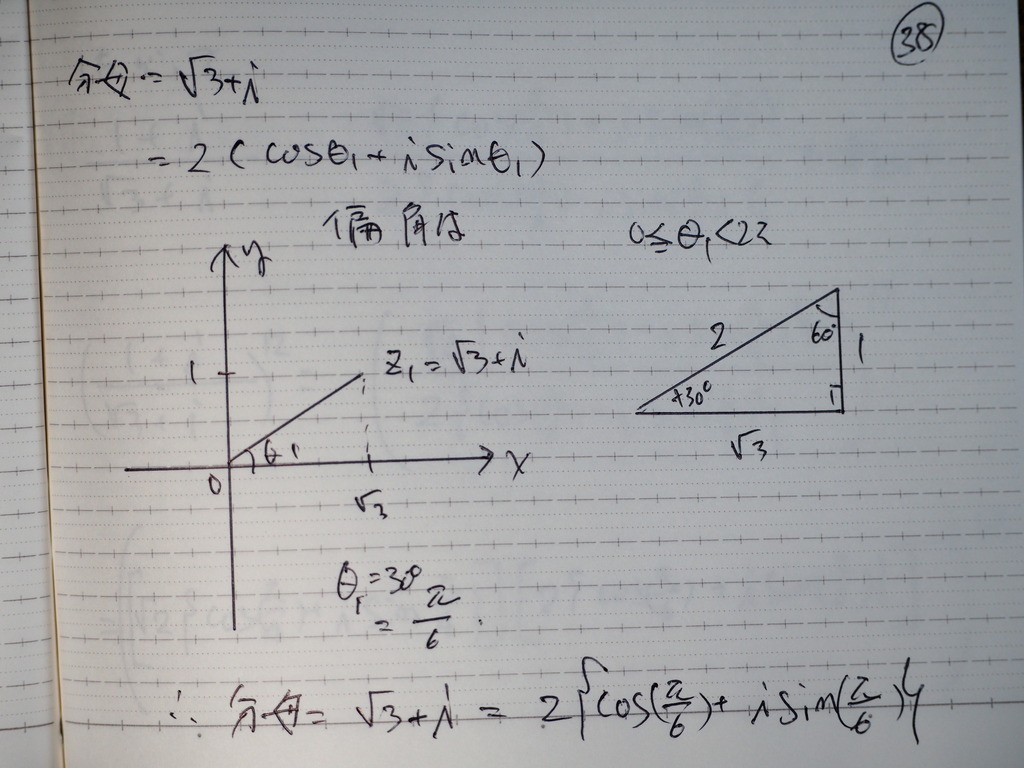 38
分母 = √3+i
= 2 (cosθ₁ + i sinθ₁)
偏角は
0≤θ₁<2π
y
1
z₁ = √3+i
θ₁
0
√3
x
2
60°
1
30°
√3
θ₁ = 30°
= π/6.
∴ 分母 = √3+i = 2{cos(π/6) + i sin(π/6)}